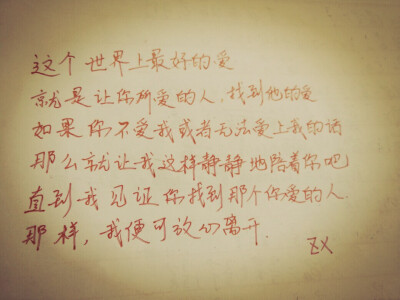 这个世界上最好的爱
就是让你所爱的人，找到他的爱
如果你不爱我或者无法爱上我的话
那么就让我这样静静地陪着你吧
直到我见证你找到那个你爱的人.
那样，我便可放心离开.
ZX